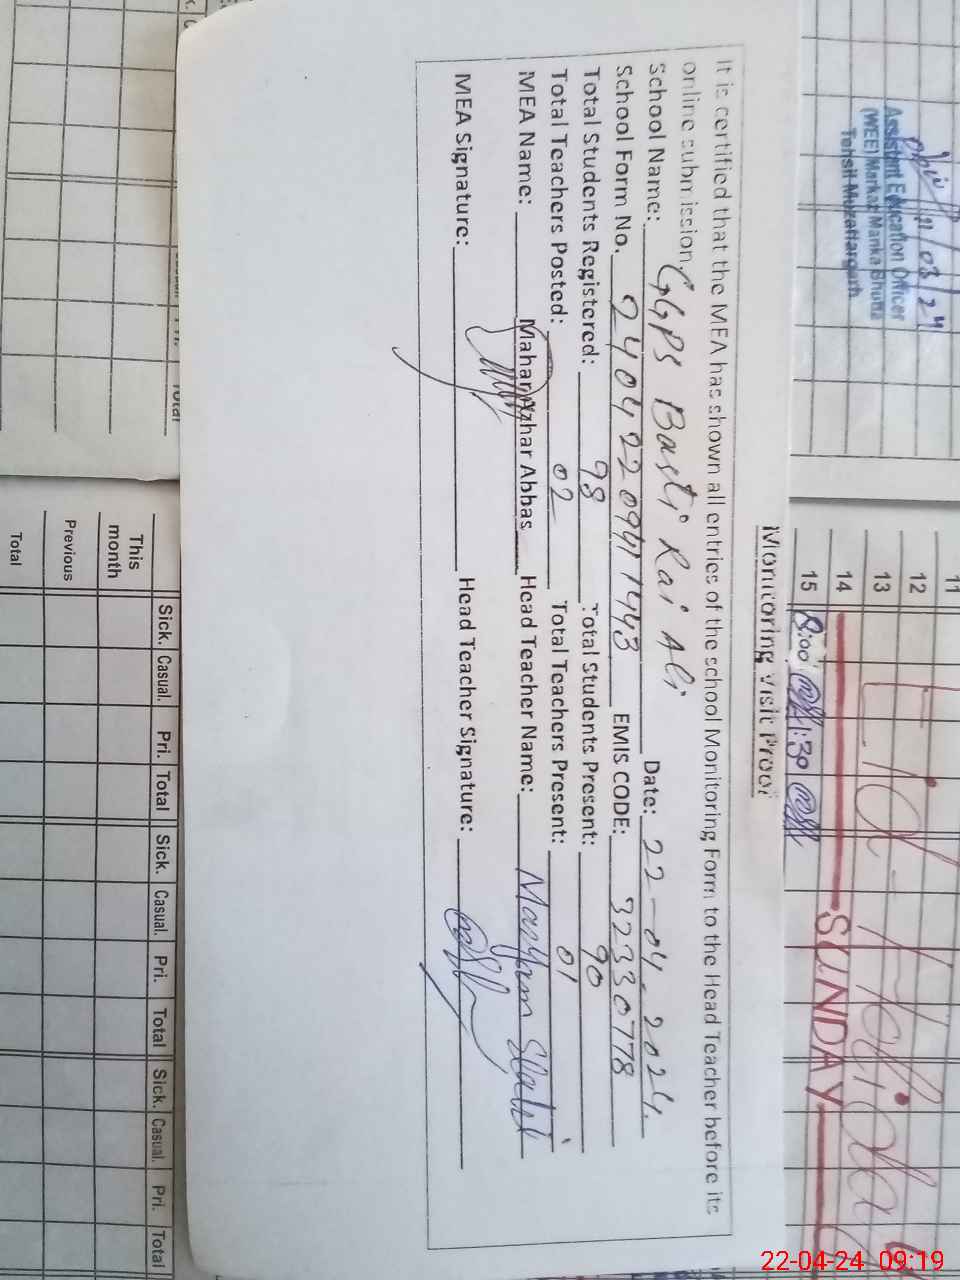 Monitoring Visit Proof
It is certified that the MEA has shown all entries of the school Monitoring Form to the Head Teacher before its
online submission.
School Name: GGPS Basti Rai Ali Date: 22-04-2024.
School Form No. 24042209411443 EMIS CODE: 32330778
Total Students Registered: 98 Total Students Present: 90
Total Teachers Posted: 02 Total Teachers Present: 01
MEA Name: Mahar Azhar Abbas Head Teacher Name: Maryam
MEA Signature: Head Teacher Signature:
11/03/24
Assistant Education Officer
(WEE) Markaz Manka Bhutta
Tehsil Muzaffargarh
11
12
13
14 SUNDAY
15 8:00 1:30
Eid Holiday
Total
This month
Previous
Total
Sick. Casual. Pri. Total Sick. Casual. Pri. Total Sick. Casual. Pri. Total
22-04-24 09:19